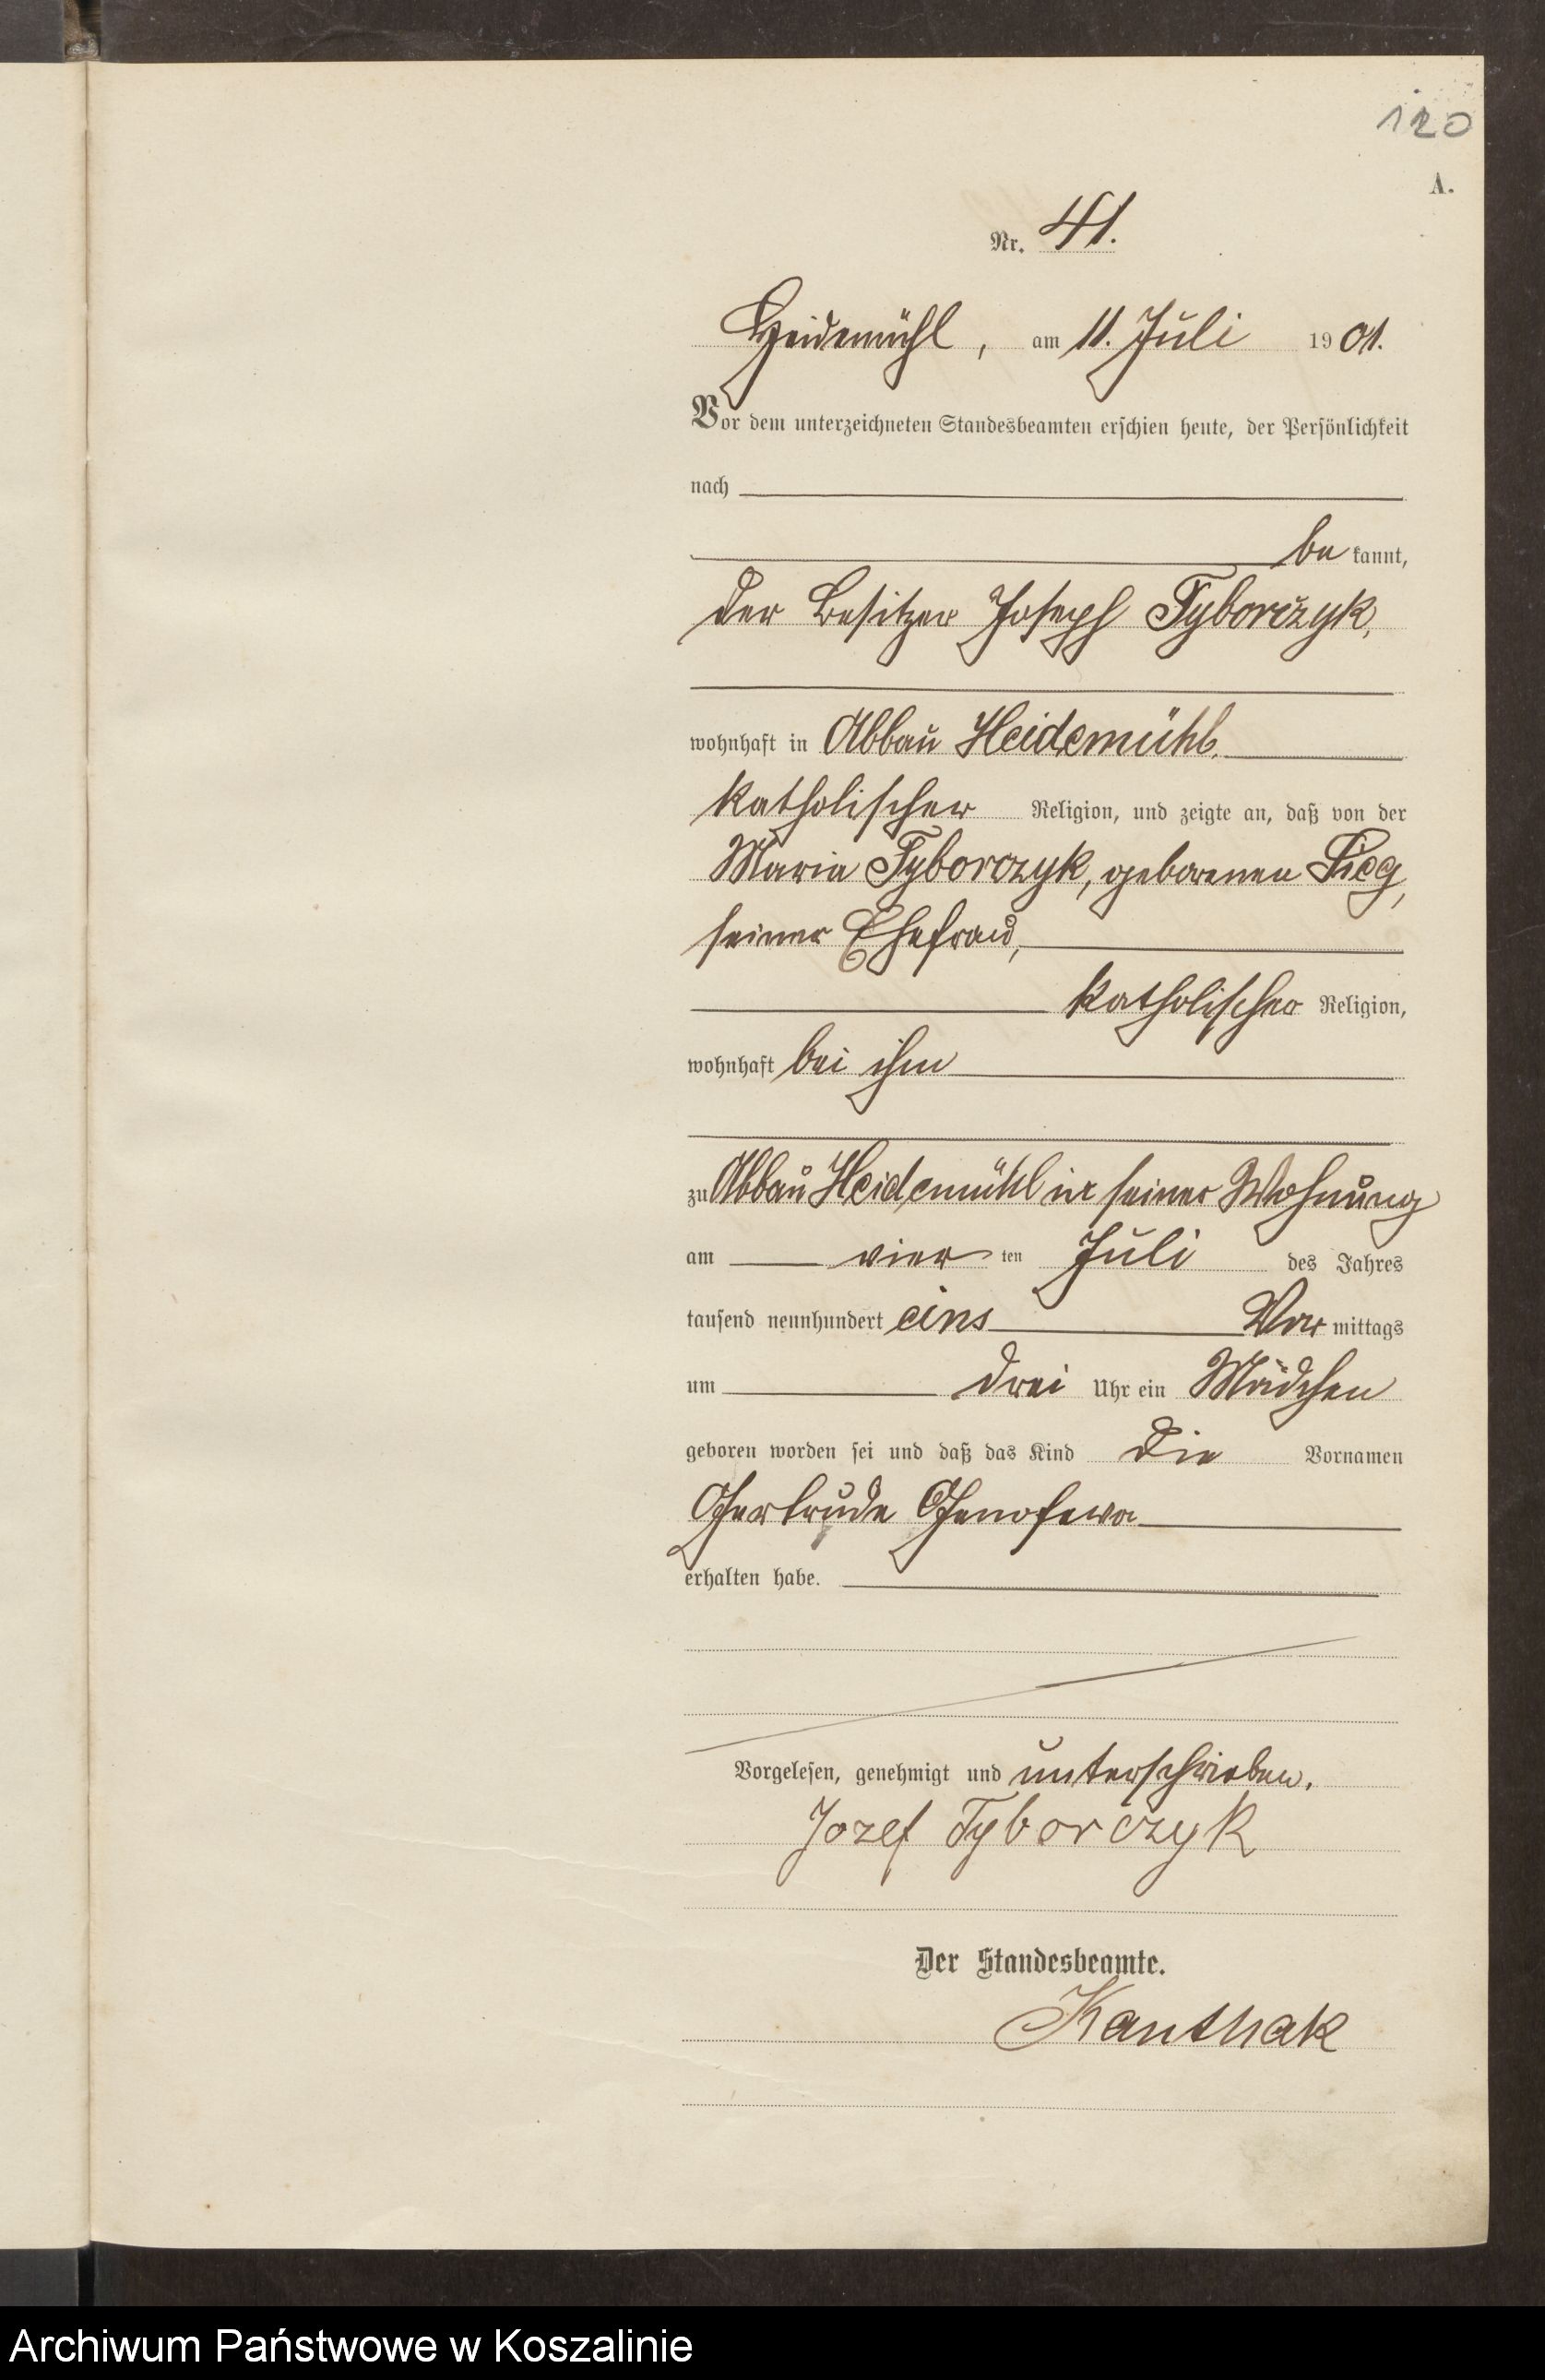 120
A.
Nr. 41.
Heidemühl, am 11. Juli 1901.
Vor dem unterzeichneten Standesbeamten erschien heute, der Persönlichkeit
nach
be kannt,
der Besitzer Joseph Tyborczyk,
wohnhaft in Abbau Heidemühl,
katholischer Religion, und zeigte an, daß von der
Maria Tyborczyk, geborenen Sieg,
seiner Ehefrau,
katholischer Religion,
wohnhaft bei ihm
zu Abbau Heidemühl in seiner Wohnung
am vier ten Juli des Jahres
tausend neunhundert eins Vor mittags
um drei Uhr ein Mädchen
geboren worden sei und daß das Kind die Vornamen
Gertrude Genofewa
erhalten habe.
Vorgelesen, genehmigt und unterschrieben.
Jozef Tyborczyk
Der Standesbeamte.
Kanthak
Archiwum Państwowe w Koszalinie